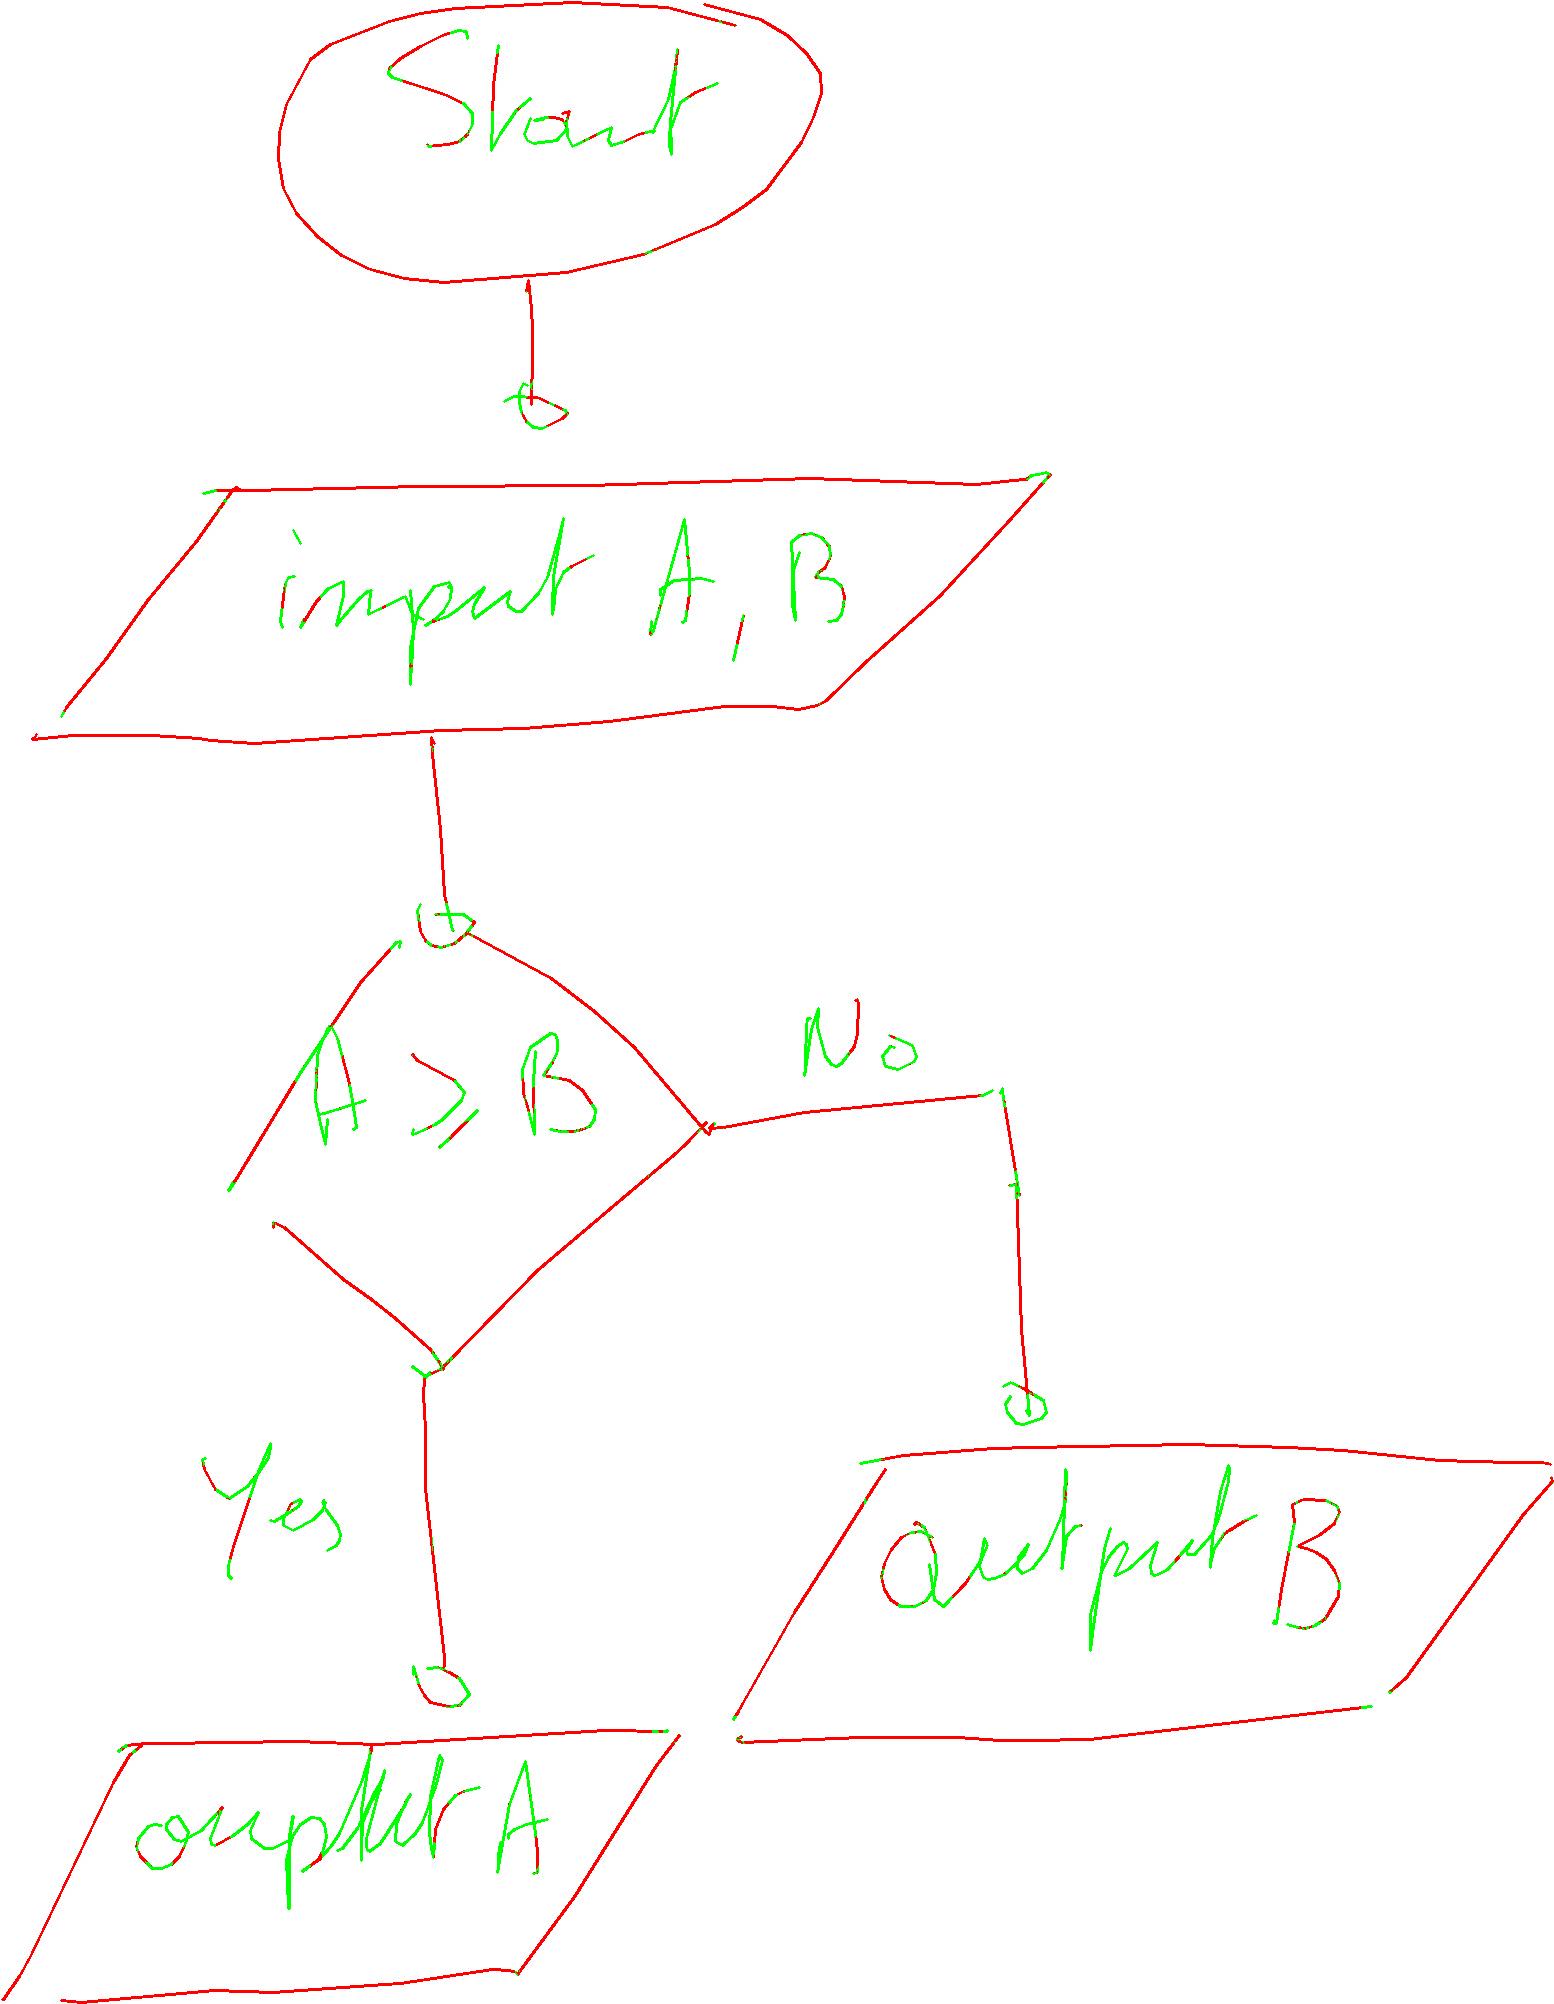 Start
input A, B
A ⩾ B
No
Yes
Output B
output A